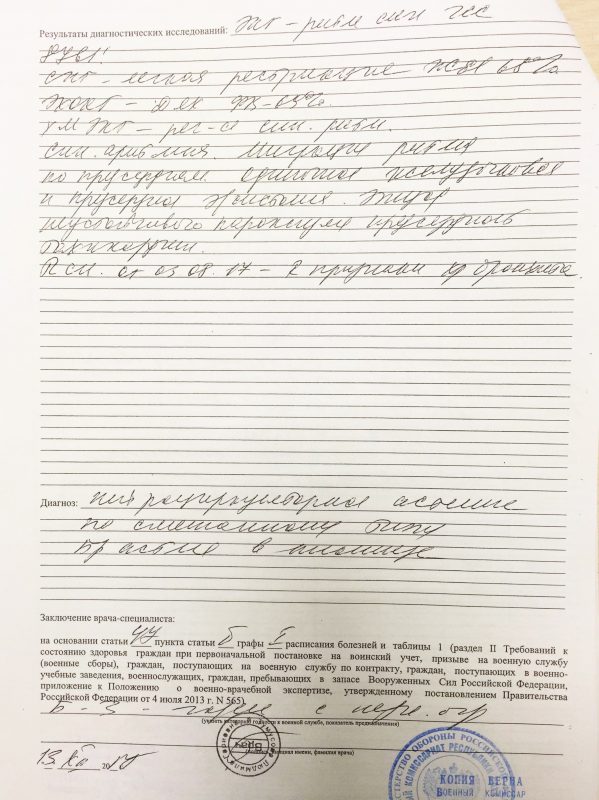 Результаты диагностических исследований: ЭКГ – ритм син ЧСС
СПГ – легкая рестрикция ЖЕЛ 68%
ЭХОКГ –
ХМ ЭКГ – рег-ся син. ритм.
син. аритмия. Миграция ритма
по предсердиям единичная желудочковая
и предсердная экстрасистолия. Эпизод
неустойчивого пароксизма предсердной
тахикардии.
R от 03 08. 17 – R признаки хр бронхита
Диагноз: нейроциркуляторная астения
по смешанному типу
в анамнезе
Заключение врача-специалиста:
на основании статьи пункта статьи б графы I расписания болезней и таблицы 1 (раздел II Требований к
состоянию здоровья граждан при первоначальной постановке на воинский учет, призыве на военную службу
(военные сборы), граждан, поступающих на военную службу по контракту, граждан, поступающих в военно-
учебные заведения, военнослужащих, граждан, пребывающих в запасе Вооруженных Сил Российской Федерации,
приложение к Положению о военно-врачебной экспертизе, утвержденному постановлением Правительства
Российской Федерации от 4 июля 2013 г. N 565).
Б – 3 – годен с
(указать категорию годности к военной службе, показатель предназначения)
13. XII 2017
инициал имени, фамилия врача)
МИНИСТЕРСТВО ОБОРОНЫ РОССИЙСКОЙ
КОПИЯ ВЕРНА
ВОЕННЫЙ КОМИССАР